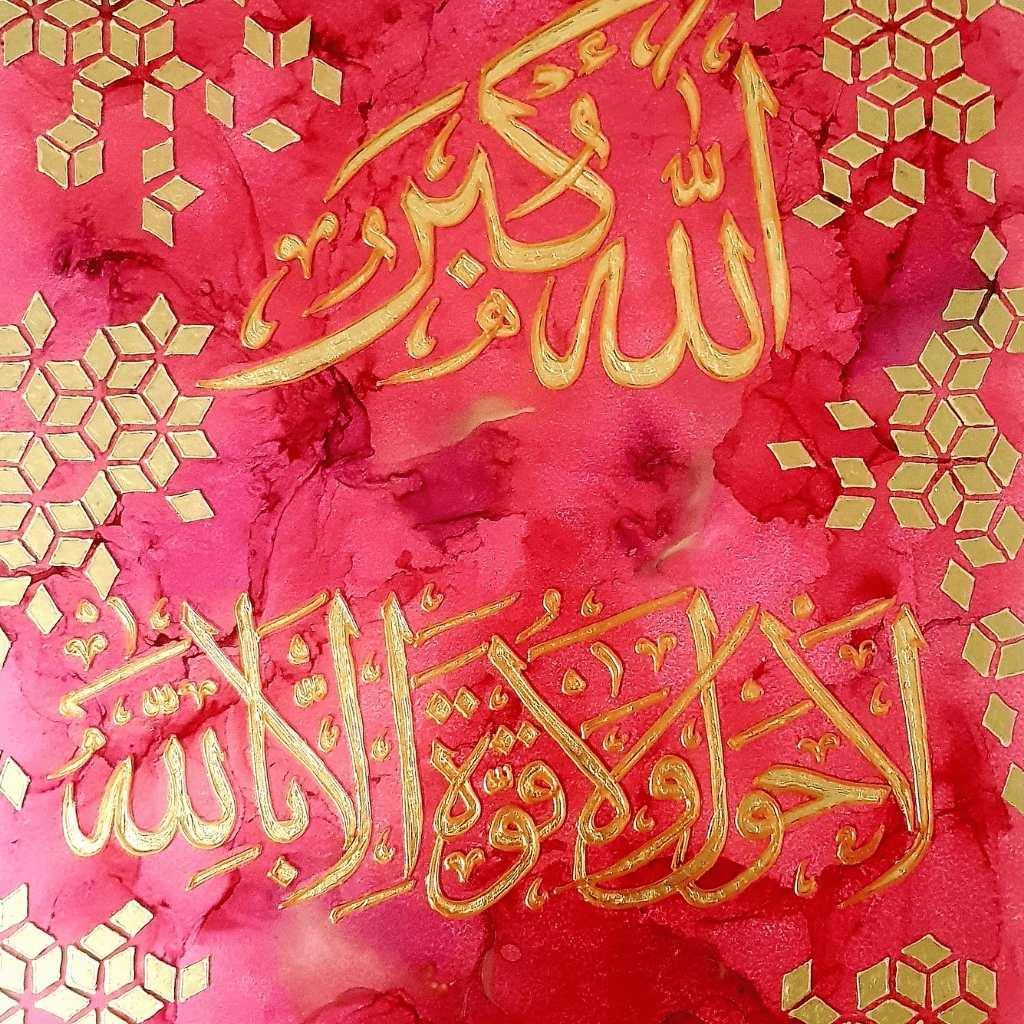 الله أكبر
لا حول ولا قوة إلا بالله